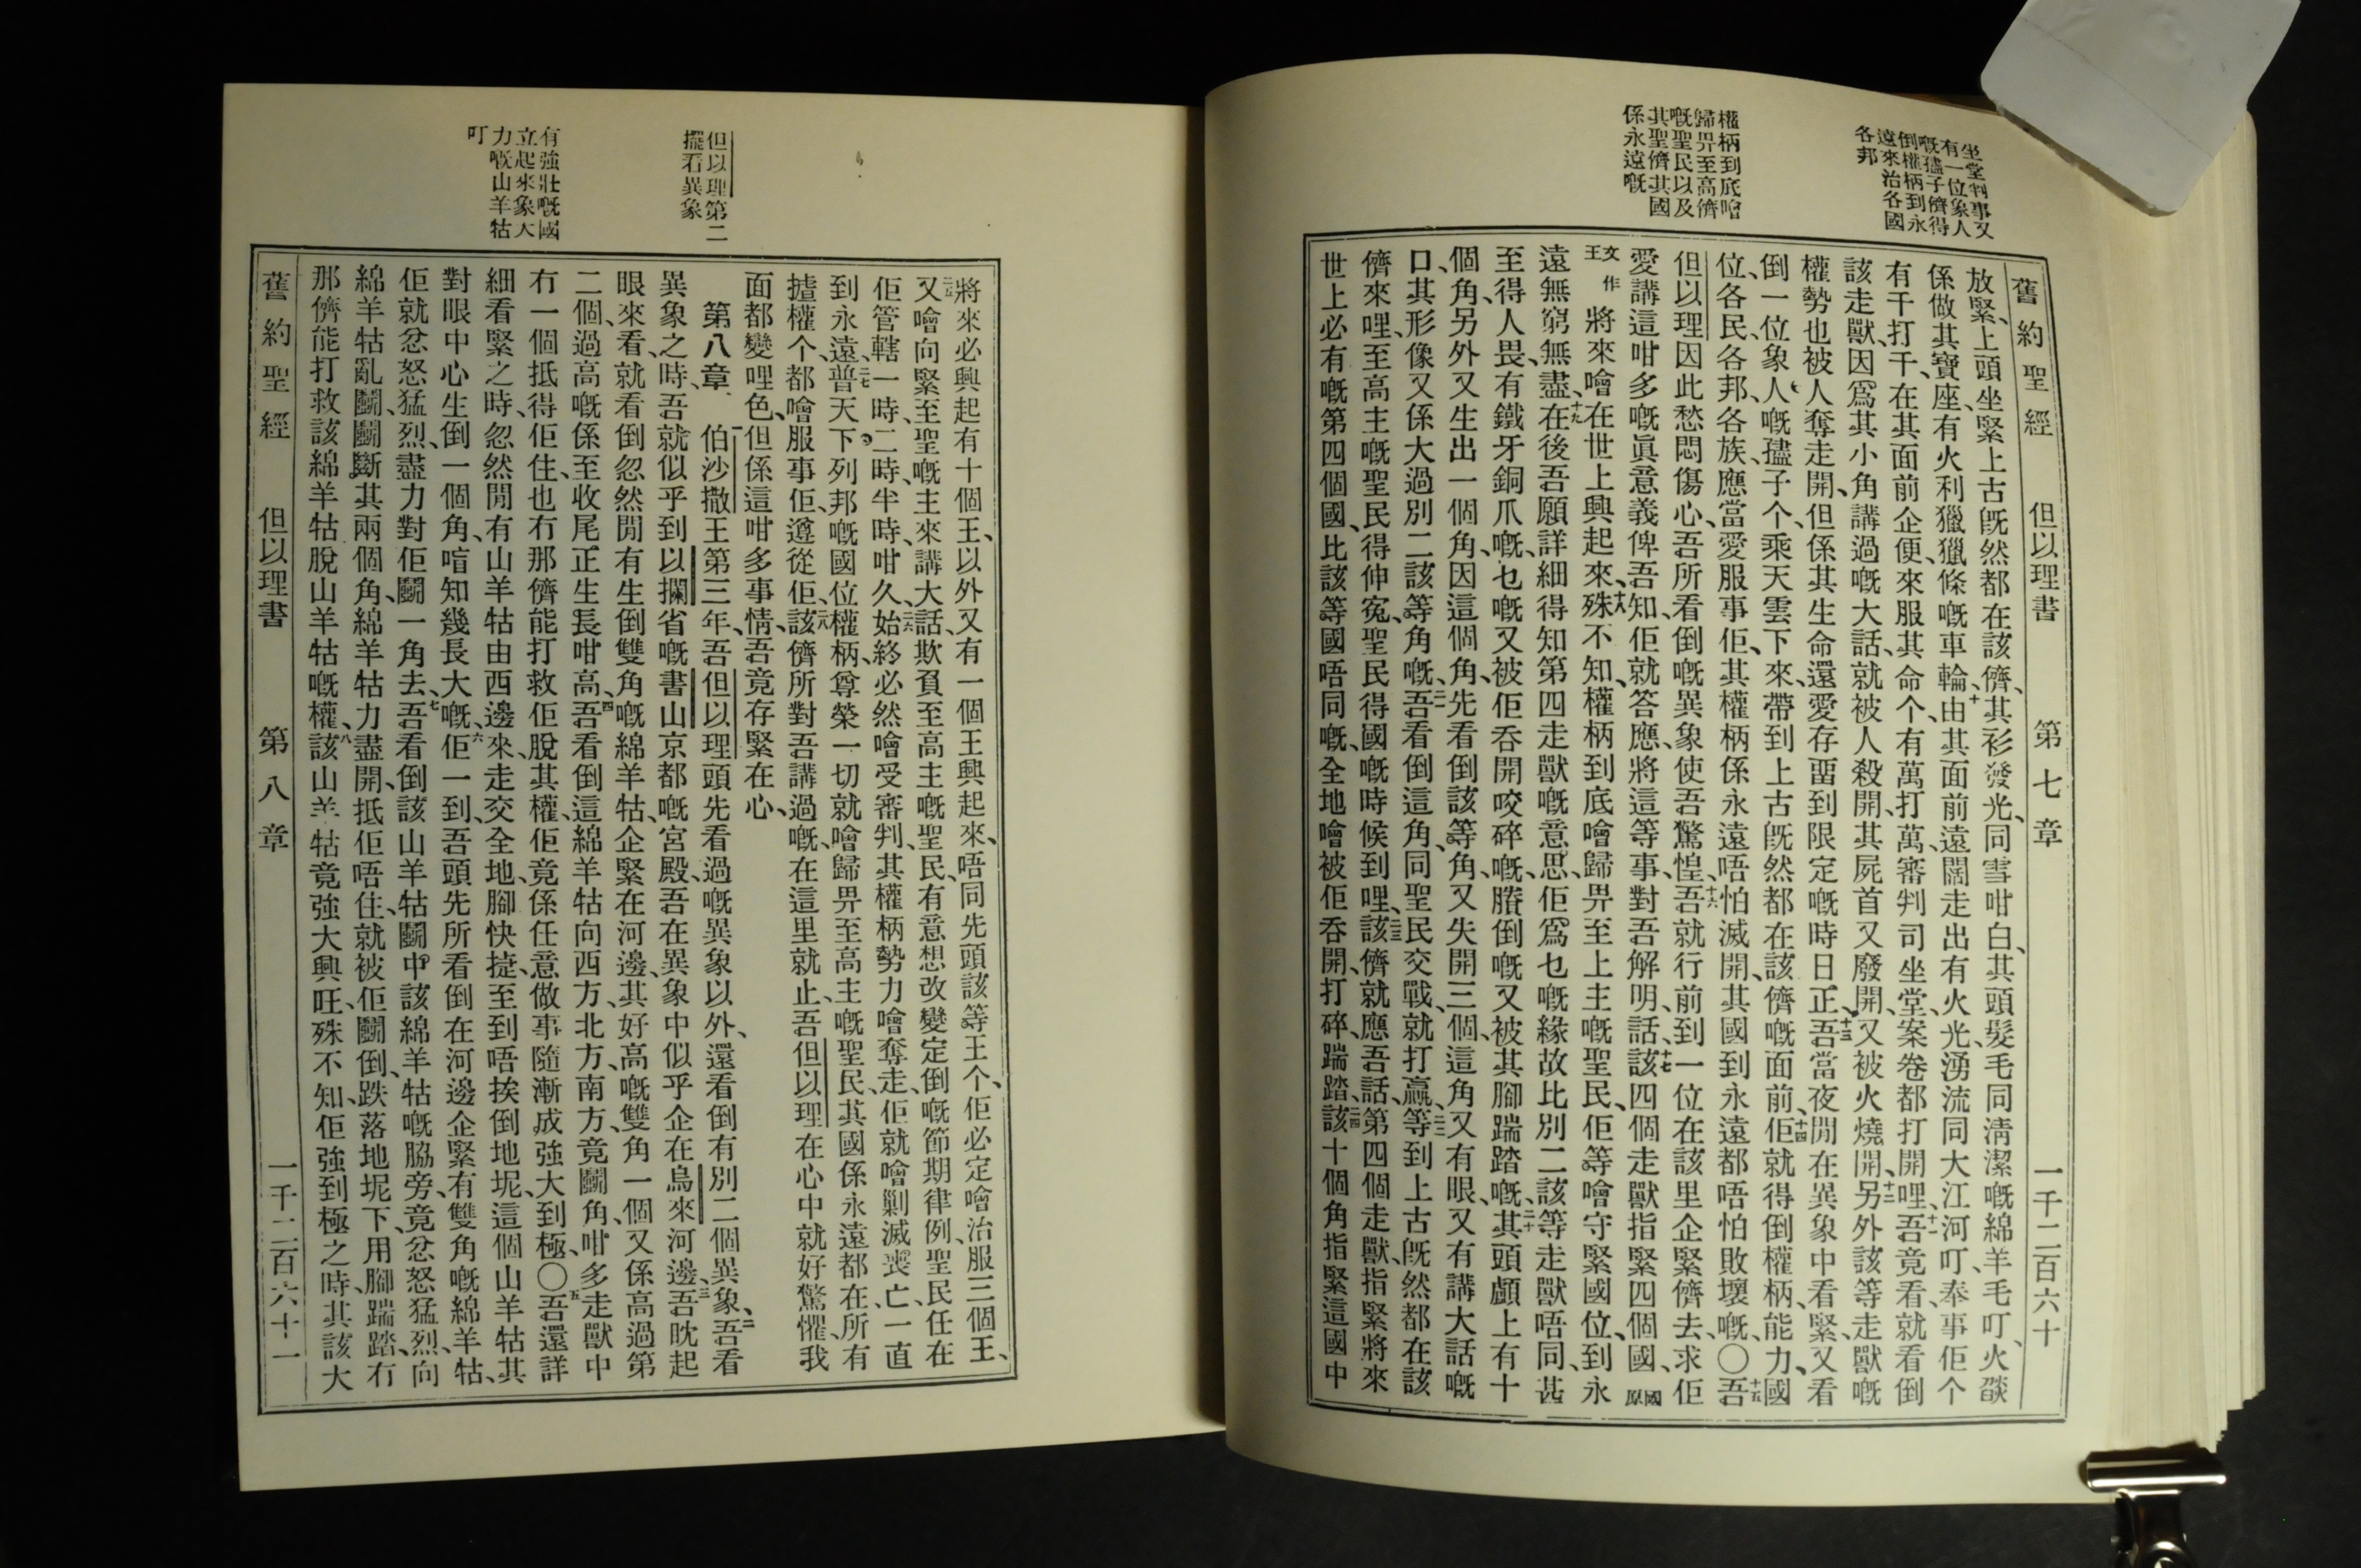 舊約聖經 但以理書 第七章 一千二百六十
坐堂判事又
有一位象人
嘅孻子儕得
倒權柄到永
遠來治各國
各邦
權柄到底噲
歸畀至高儕
嘅聖民以及
其聖儕其國
係永遠嘅
放緊、上頭坐緊上古旣然都在該儕、其衫發光、同雪咁白、其頭髮毛同淸潔嘅綿羊毛叮、火燄
係做其寶座、有火利獵獵條嘅車輪、十由其面前遠闊走出有火光湧流同大江河叮、奉事佢个
有千打千、在其面前企便來服其命个、有萬打萬、審判司坐堂、案卷都打開哩、十一吾竟看就看倒
該走獸、因爲其小角講過嘅大話、就被人殺開、其屍首又廢開、又被火燒開、十二另外該等走獸嘅
權勢也被人奪走開、但係其生命還愛存畱到限定嘅時日正、十三吾當夜間在異象中看緊、又看
倒一位象人嘅孻子个、乘天雲下來、帶到上古旣然都在該儕嘅面前、十四佢就得倒權柄、能力、國
位、各民、各邦、各族、應當愛服事佢、其權柄係永遠唔怕滅開、其國到永遠都唔怕敗壞嘅、〇十五吾
但以理因此愁悶傷心、吾所看倒嘅異象使吾驚惶、十六吾就行前到一位在該里企緊儕去、求佢
愛講這咁多嘅眞意義俾吾知、佢就答應、將這等事對吾解明、話、十七該四個走獸指緊四個國、國原
文作王將來噲在世上興起來、十八殊不知、權柄到底噲歸畀至上主嘅聖民、佢等噲守緊國位、到永
遠無窮無盡、十九在後吾願詳細得知第四走獸嘅意思、佢爲乜嘅緣故比別二該等走獸唔同、甚
至得人畏、有鐵牙銅爪嘅、乜嘅又被佢吞開咬碎嘅、賸倒嘅又被其腳踹踏嘅、二十其頭顱上有十
個角、另外又生出一個角、因這個角、先看倒該等角、又失開三個、這角又有眼、又有講大話嘅
口、其形像又係大過別二該等角嘅、二一吾看倒這角、同聖民交戰、就打贏、二二等到上古旣然都在該
儕來哩、至高主嘅聖民得伸寃、聖民得國嘅時候到哩、二三該儕就應吾話、第四個走獸、指緊將來
世上必有嘅第四個國、比該等國唔同嘅、全地噲被佢吞開、打碎、踹踏、二四該十個角指緊這國中
但以理第二
擺看異象
有強壯嘅國
立起來象大
力嘅山羊牯
叮
將來必興起有十個王、以外又有一個王興起來、唔同先頭該等王个、佢必定噲治服三個王、
二五又噲向緊至聖嘅主來講大話、欺負至高主嘅聖民、有意想改變定倒嘅節期律例、聖民任在
佢管轄一時、二時、半時、咁久、二六始終必然噲受審判、其權柄勢力噲奪走、佢就噲剿滅喪亡、一直
到永遠、二七普天下列邦嘅國位權柄、尊榮一切就噲歸畀至高主嘅聖民、其國係永遠都在、所有
揸權个、都噲服事佢、遵從佢、二八該儕所對吾講過嘅、在這里就止、吾但以理在心中就好驚懼、我
面都變哩色、但係這咁多事情、吾竟存緊在心、
第八章 一伯沙撒王第三年、吾但以理頭先看過嘅異象以外、還看倒有別二個異象、二吾看
異象之時、吾就似乎到以攔省嘅書山京都嘅宮殿、吾在異象中似乎企在烏來河邊、三吾眈起
眼來看、就看倒忽然閒有生倒雙角嘅綿羊牯、企緊在河邊、其好高嘅雙角一個又係高過第
二個、過高嘅係至收尾正生長咁高、四吾看倒這綿羊牯向西方、北方、南方、竟鬭角、咁多走獸中
冇一個抵得佢住、也冇那儕能打救佢脫其權、佢竟係任意做事、隨漸成強大到極、〇五吾還詳
細看緊之時、忽然閒有山羊牯由西邊來、走交全地、腳快㨗、至到唔挨倒地坭、這個山羊牯其
對眼中心生倒一個角、喧知幾長大嘅、六佢一到、吾頭先所看倒在河邊企緊有雙角嘅綿羊牯、
佢就忿怒猛烈、盡力對佢鬭一角去、七吾看倒該山羊牯鬭中該綿羊牯嘅脇旁、竟忿怒猛烈、向
綿羊牯亂鬭、鬭斷其兩個角、綿羊牯力盡開、抵佢唔住、就被佢鬭倒、跌落地坭下、用腳踹踏、冇
那儕能打救該綿羊牯脫山羊牯嘅權、八該山羊牯竟強大興旺、殊不知、佢強到極之時、其該大
舊約聖經 但以理書 第八章 一千二百六十一